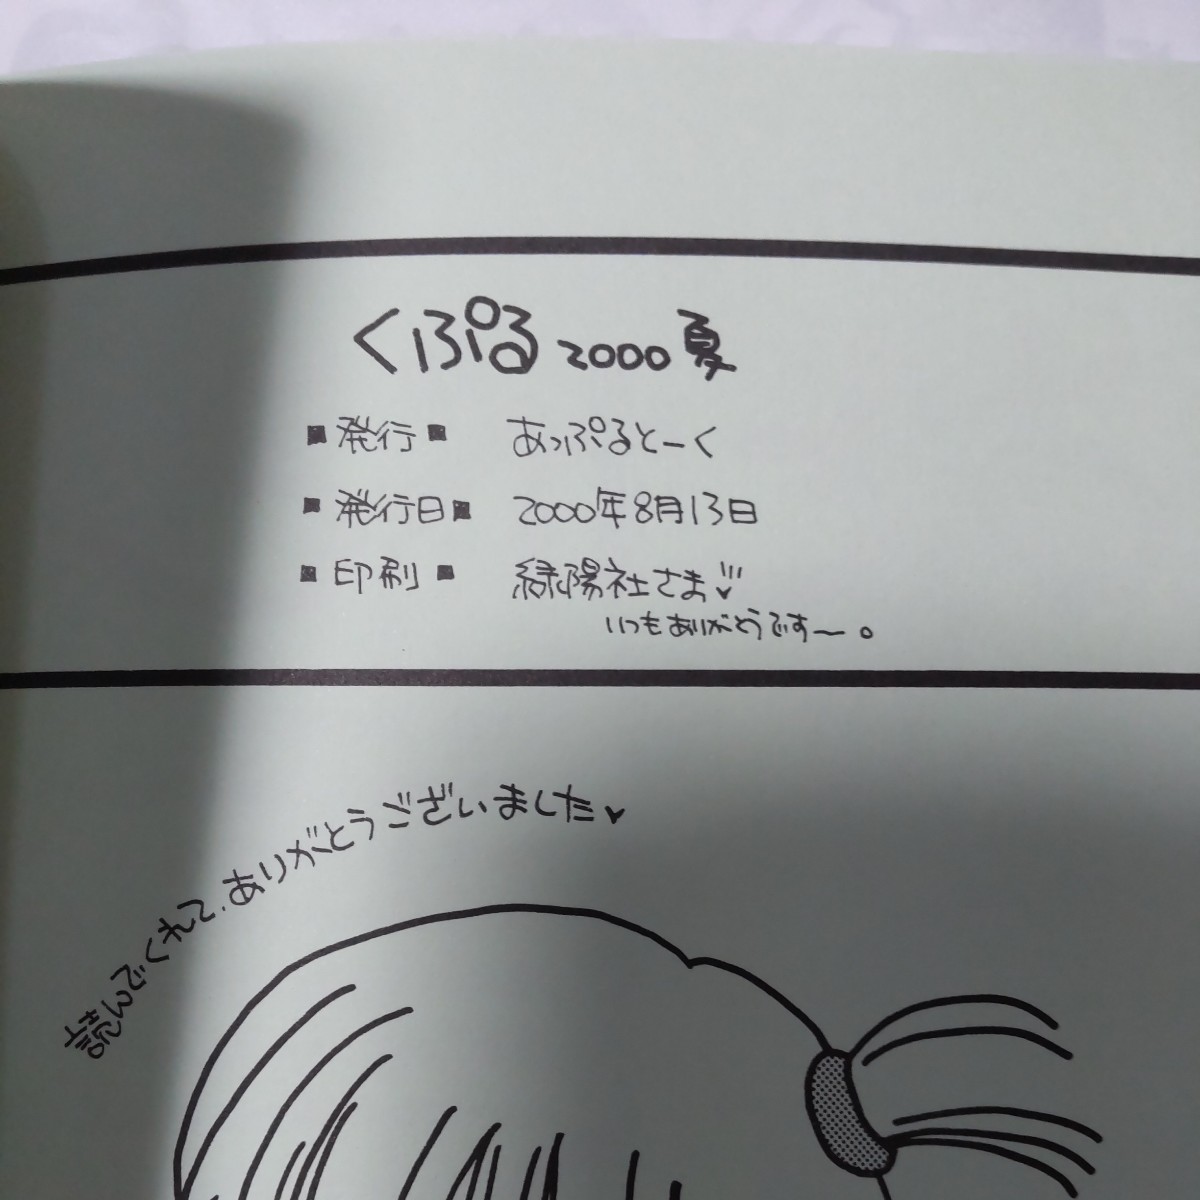 くぷる2000夏
■発行■ あっぷるとーく
■発行日■ 2000年8月13日
■印刷■ 緑陽社さま♡
いつもありがとうです〜。
読んでくれて、ありがとうございました♥